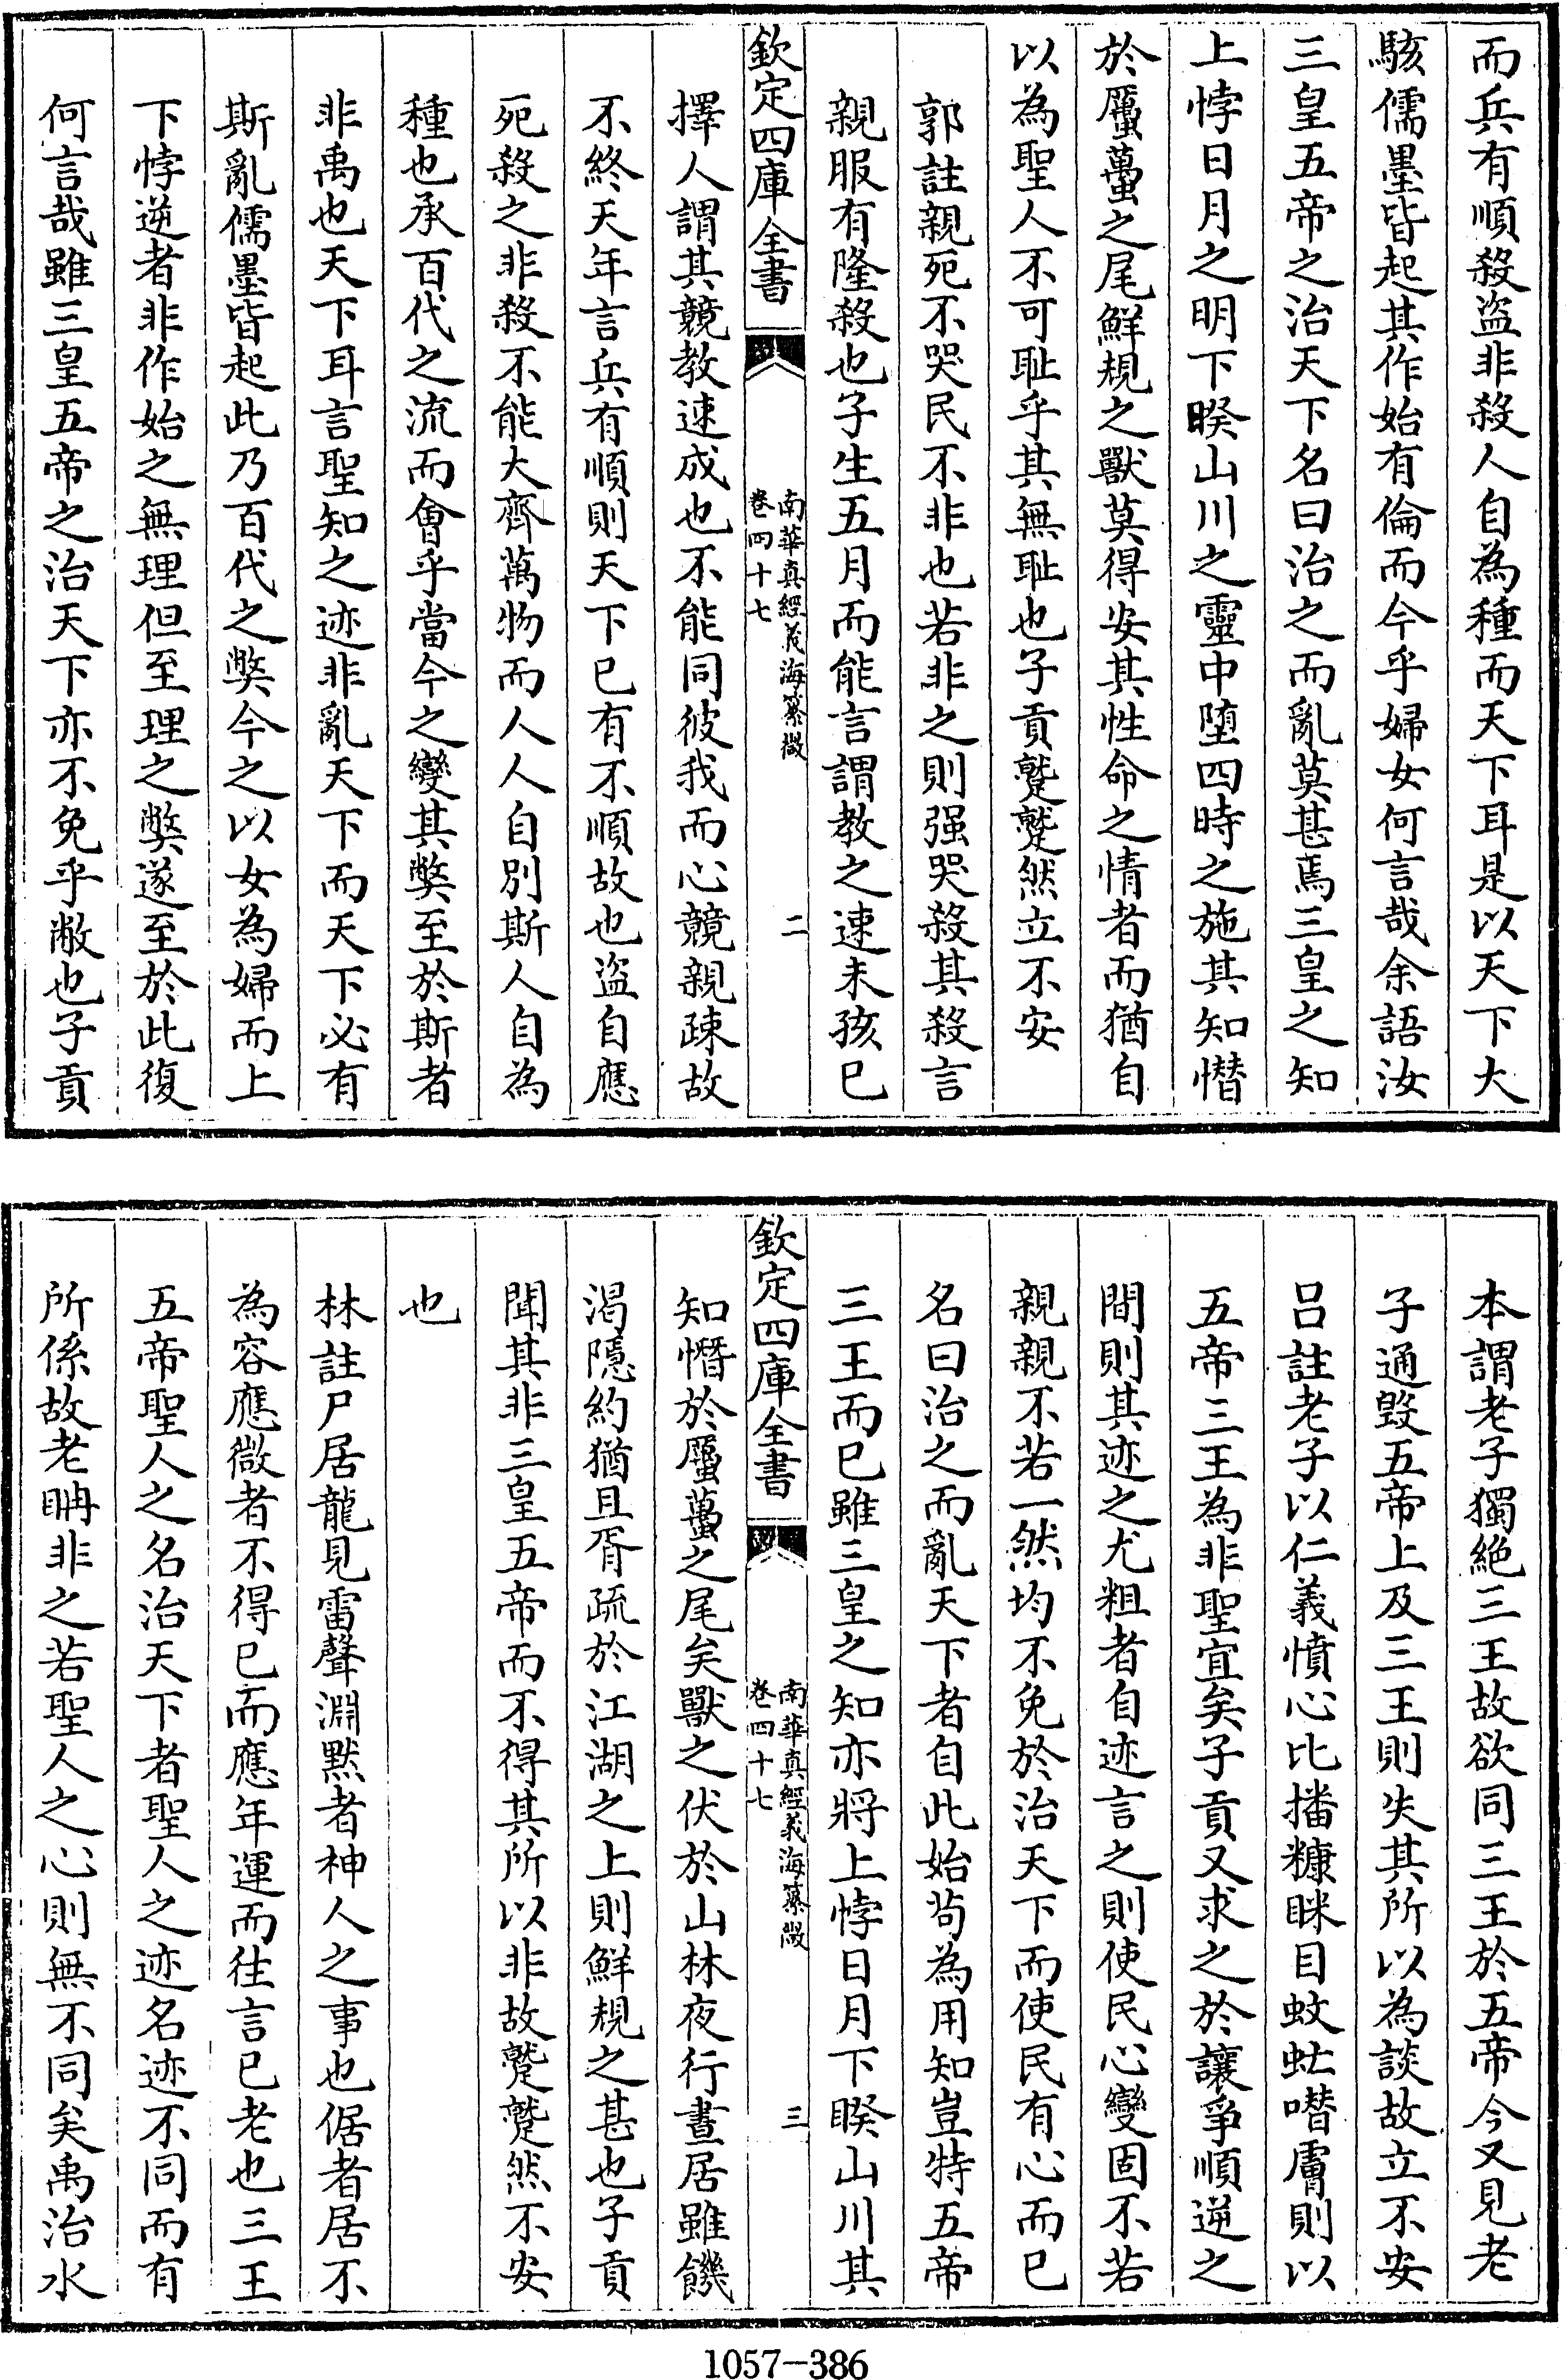 而兵有順殺盜非殺人自為種而天下耳是以天下大
駭儒墨皆起其作始有倫而今乎婦女何言哉余語汝
三皇五帝之治天下名曰治之而亂莫甚焉三皇之知
上悖日月之明下睽山川之靈中墮四時之施其知憯
於蠆之尾鮮規之獸莫得安其性命之情者而猶自
以為聖人不可恥乎其無恥也子貢蹵蹵然立不安
郭註親死不哭民不非也若非之則强哭殺其殺言
親服有隆殺也子生五月而能言謂教之速未孩已
欽定四庫全書
南華真經義海纂微
卷四十七
二
擇人謂其競教速成也不能同彼我而心競親疎故
不終天年言兵有順則天下已有不順故也盜自應
死殺之非殺不能大齊萬物而人人自別斯人自為
種也承百代之流而會乎當今之變其弊至於斯者
非禹也天下耳言聖知之迹非亂天下而天下必有
斯亂儒墨皆起此乃百代之弊今之以女為婦而上
下悖逆者非作始之無理但至理之弊遂至於此復
何言哉雖三皇五帝之治天下亦不免乎敝也子貢
本謂老子獨絶三王故欲同三王於五帝今又見老
子通毀五帝上及三王則失其所以為談故立不安
吕註老子以仁義憤心比播糠眯目蚊虻噆膚則以
五帝三王為非聖宜矣子貢又求之於讓爭順逆之
間則其迹之尤粗者自迹言之則使民心變固不若
親親不若一然均不免於治天下而使民有心而已
名曰治之而亂天下者自此始苟為用知豈特五帝
三王而已雖三皇之知亦將上悖日月下睽山川其
欽定四庫全書
南華真經義海纂微
卷四十七
三
知憯於蠆之尾矣獸之伏於山林夜行晝居雖饑
渴隱約猶且胥疏於江湖之上則鮮規之甚也子貢
聞其非三皇五帝而不得其所以非故蹵蹵然不安
也
林註尸居龍見雷聲淵默者神人之事也倨者居不
為容應微者不得已而應年運而往言已老也三王
五帝聖人之名治天下者聖人之迹名迹不同而有
所係故老聃非之若聖人之心則無不同矣禹治水
1057-386